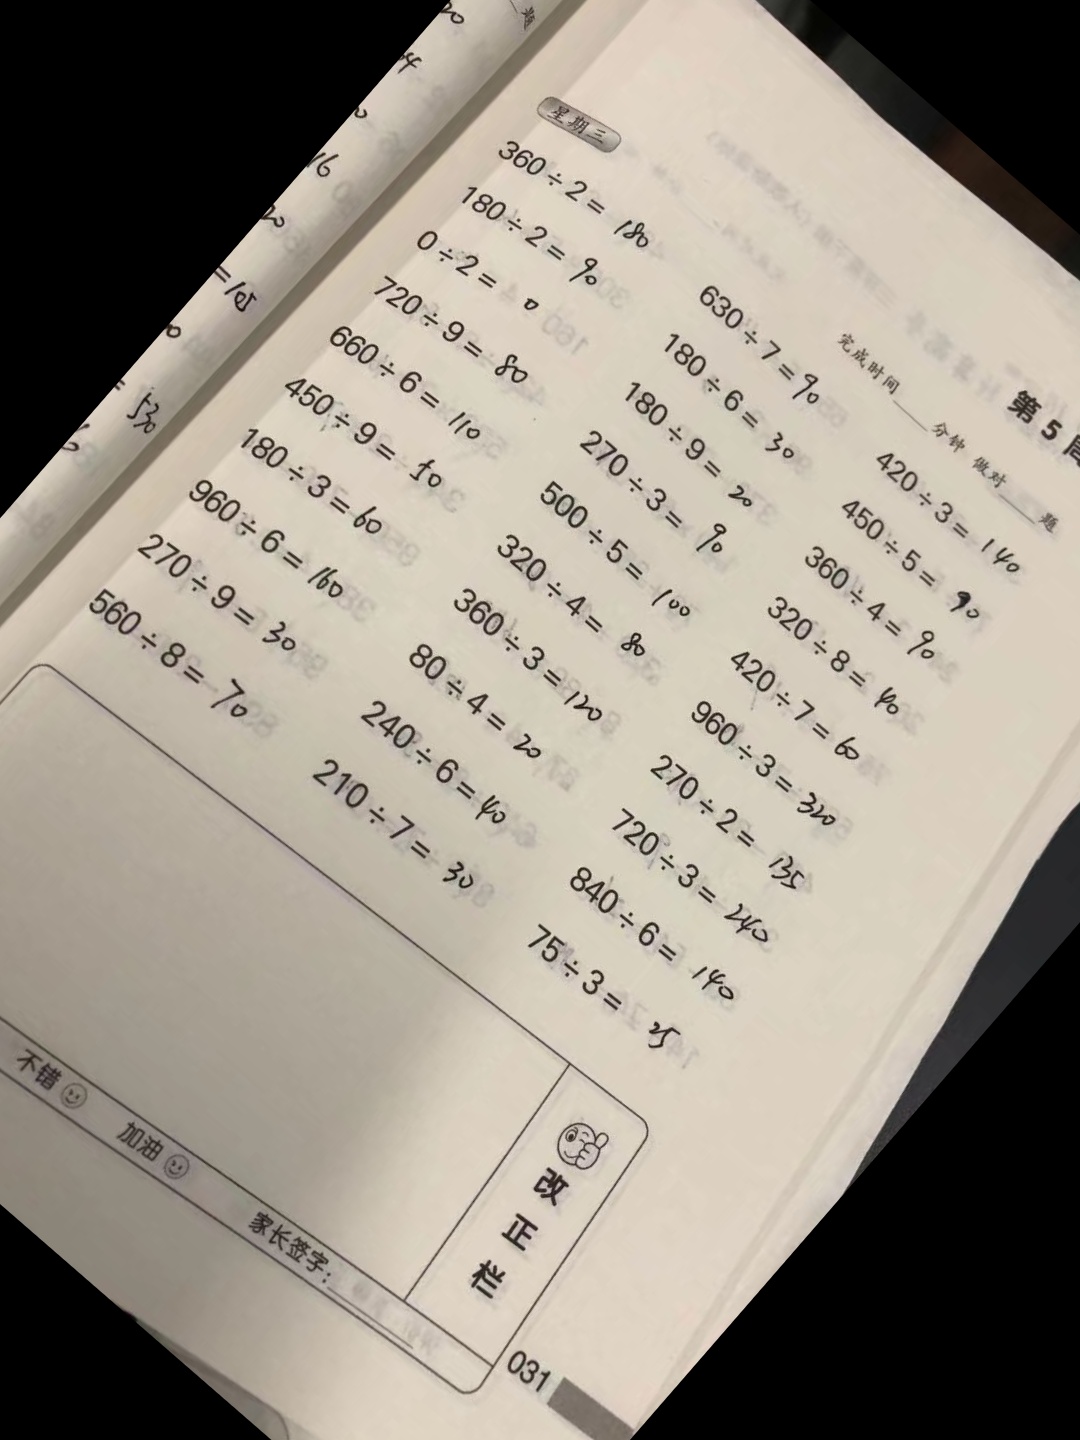 题
20
16
20
=105
530
第5周
星期三
完成时间____分钟 做对____题
360÷2=180
180÷2=90
0÷2=0
720÷9=80
660÷6=110
450÷9=50
180÷3=60
960÷6=160
270÷9=30
560÷8=70
630÷7=90
180÷6=30
180÷9=20
270÷3=90
500÷5=100
320÷4=80
360÷3=120
80÷4=20
240÷6=40
210÷7=30
420÷3=140
450÷5=90
360÷4=90
320÷8=40
420÷7=60
960÷3=320
270÷2=135
720÷3=240
840÷6=140
75÷3=25
改正栏
不错 加油 家长签字：
031